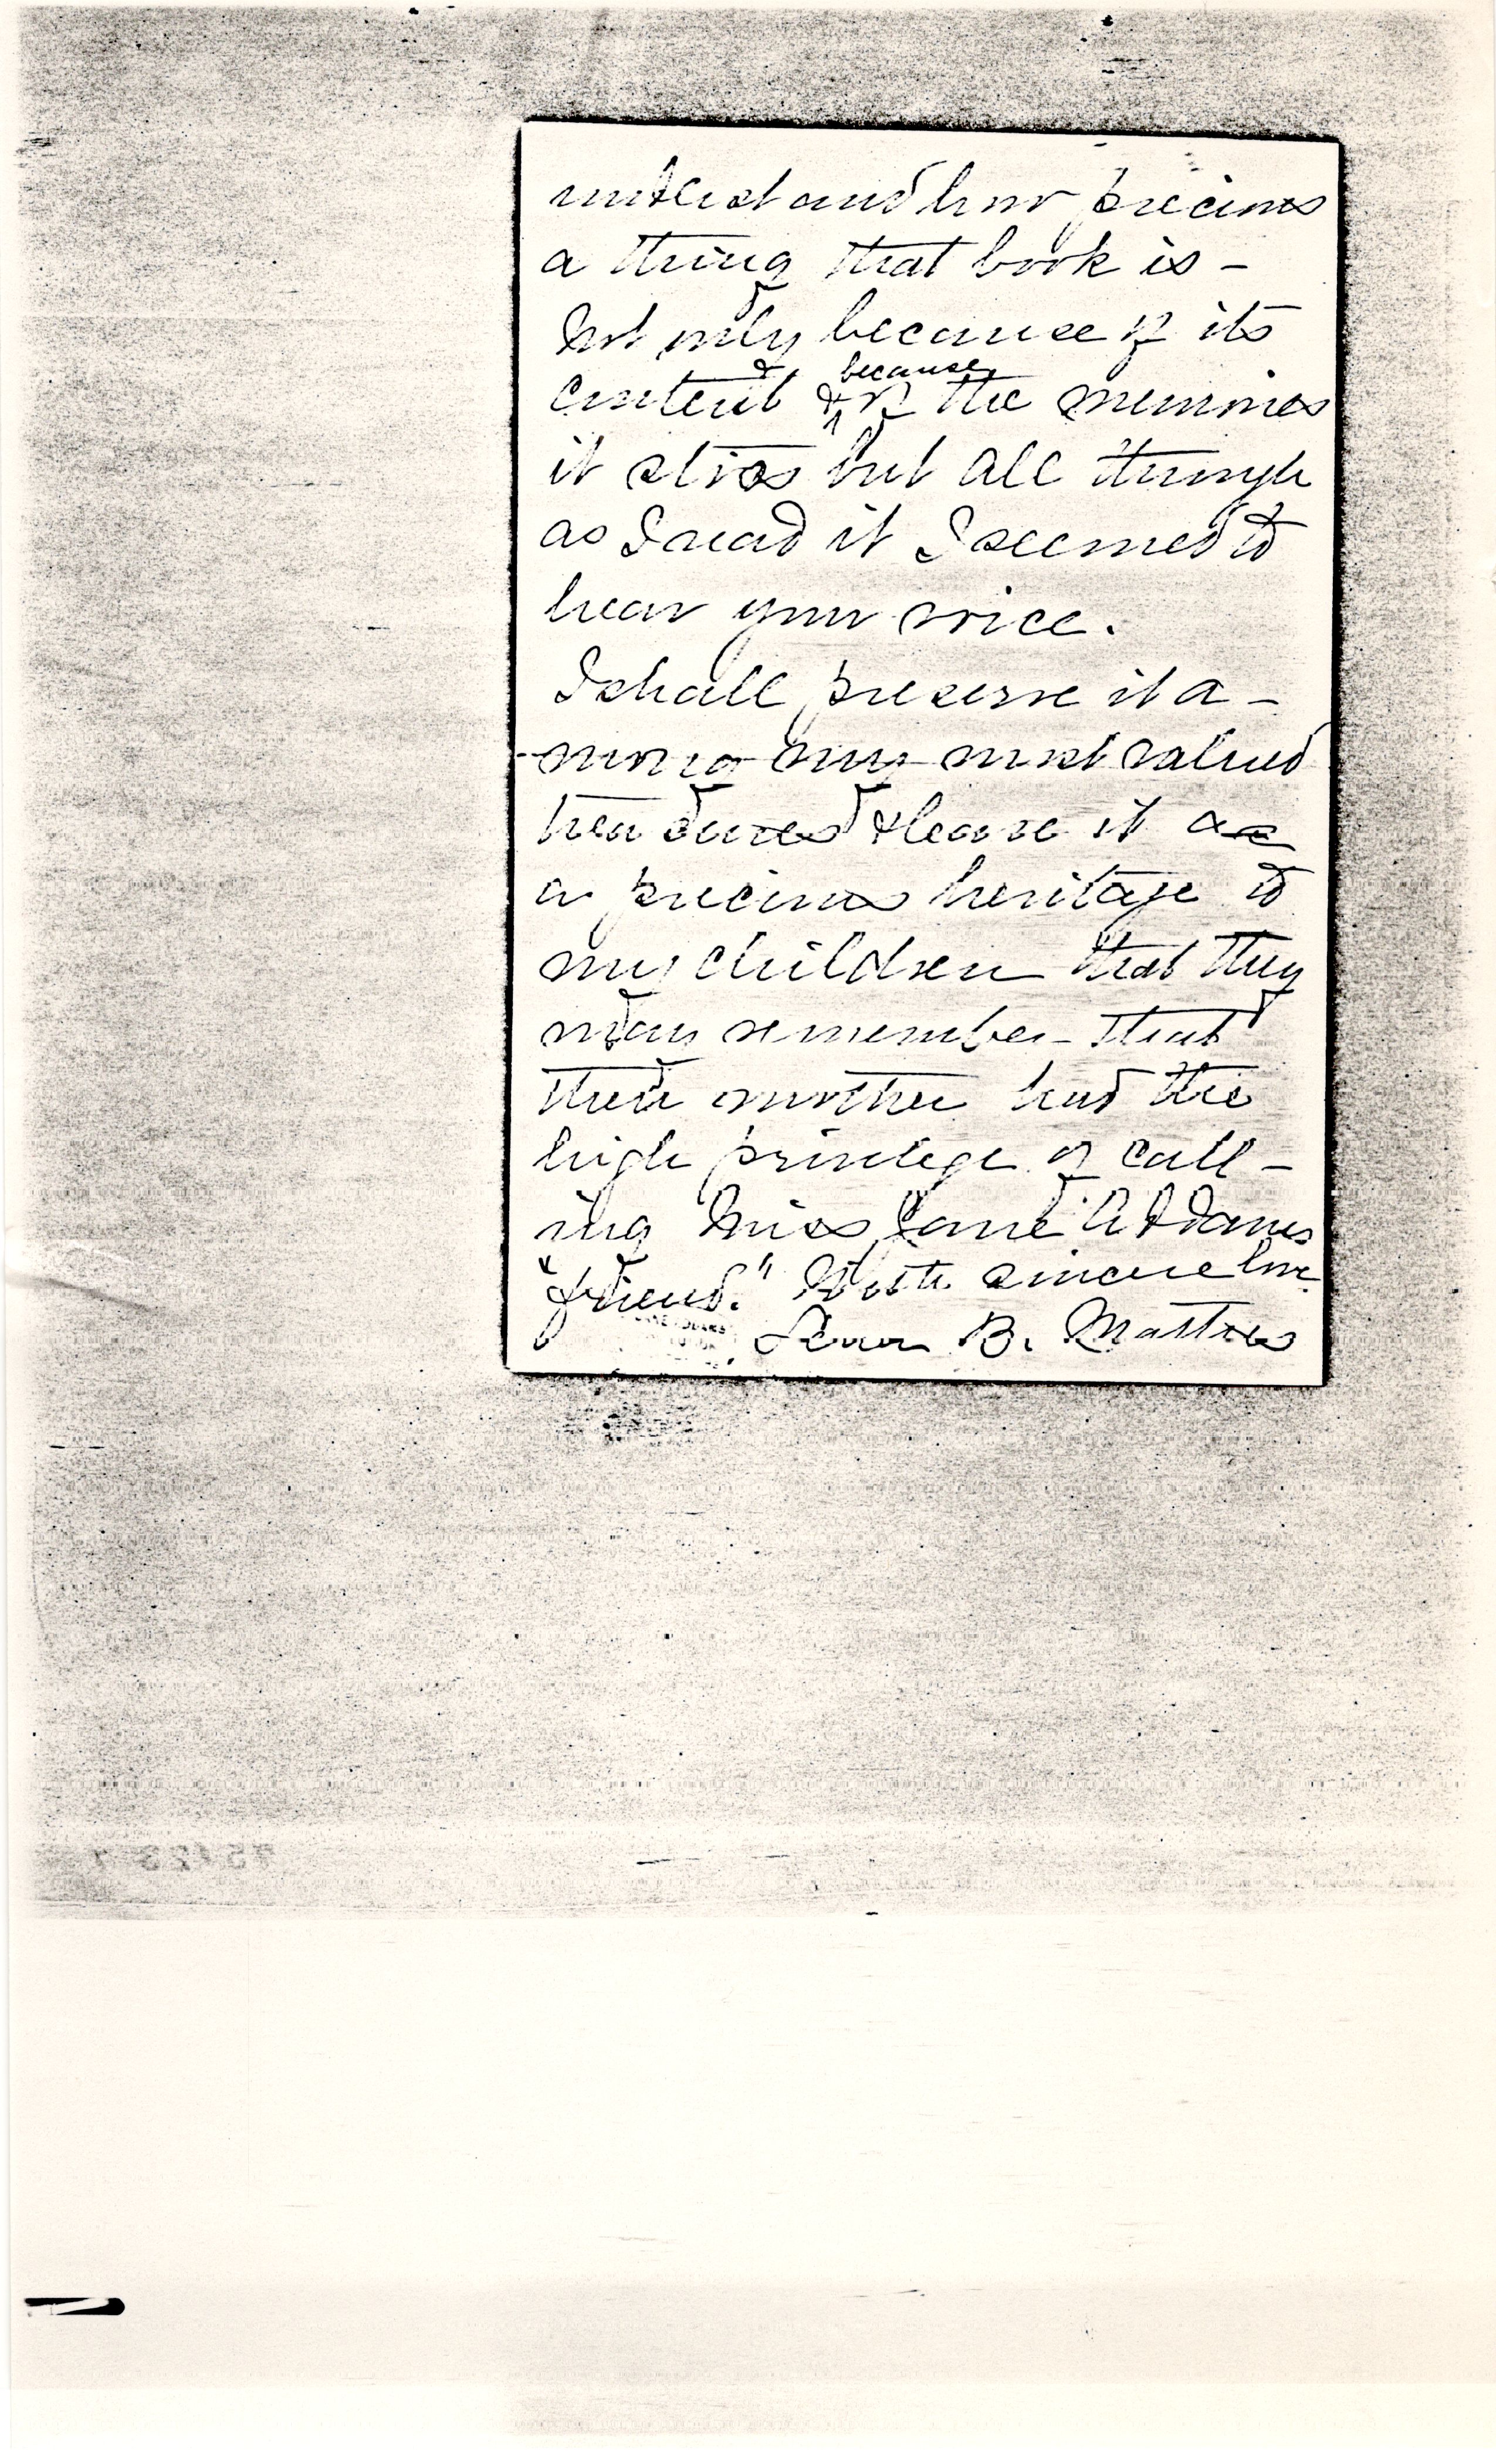 understand how precious
a thing that book is –
Not only because of its
content & because of the memories
it stirs but all through
as I read it I seemed to
hear your voice.
I shall preserve it a –
mong my most valued
treasures & leave it as
a precious heritage to
my children that they
may remember that
their mother had the
high privilege of call –
ing Miss Jane Addams
"friend." With sincere love
B. Matthews